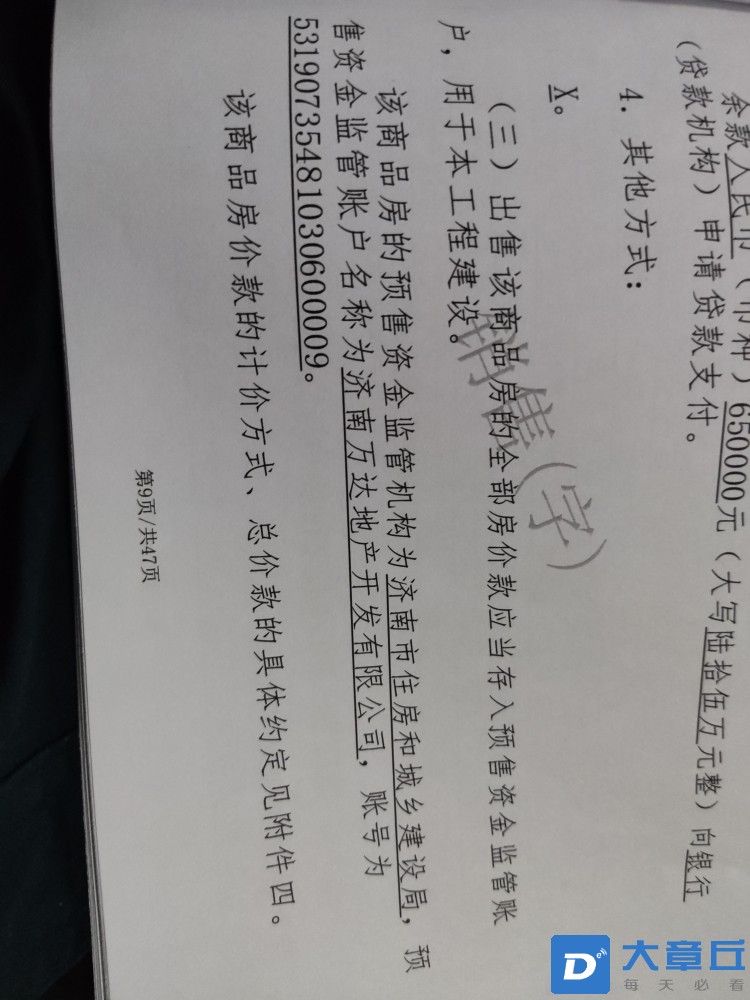 余款人民币（币种）650000元（大写陆拾伍万元整）向银行
（贷款机构）申请贷款支付。
4. 其他方式：
X。
（三）出售该商品房的全部房价款应当存入预售资金监管账
户，用于本工程建设。
该商品房的预售资金监管机构为济南市住房和城乡建设局，预
售资金监管账户名称为济南万达地产开发有限公司，账号为
531907354810306000​09。
该商品房价款的计价方式、总价款的具体约定见附件四。
第9页/共47页
销售（字）
大章丘
每天必看